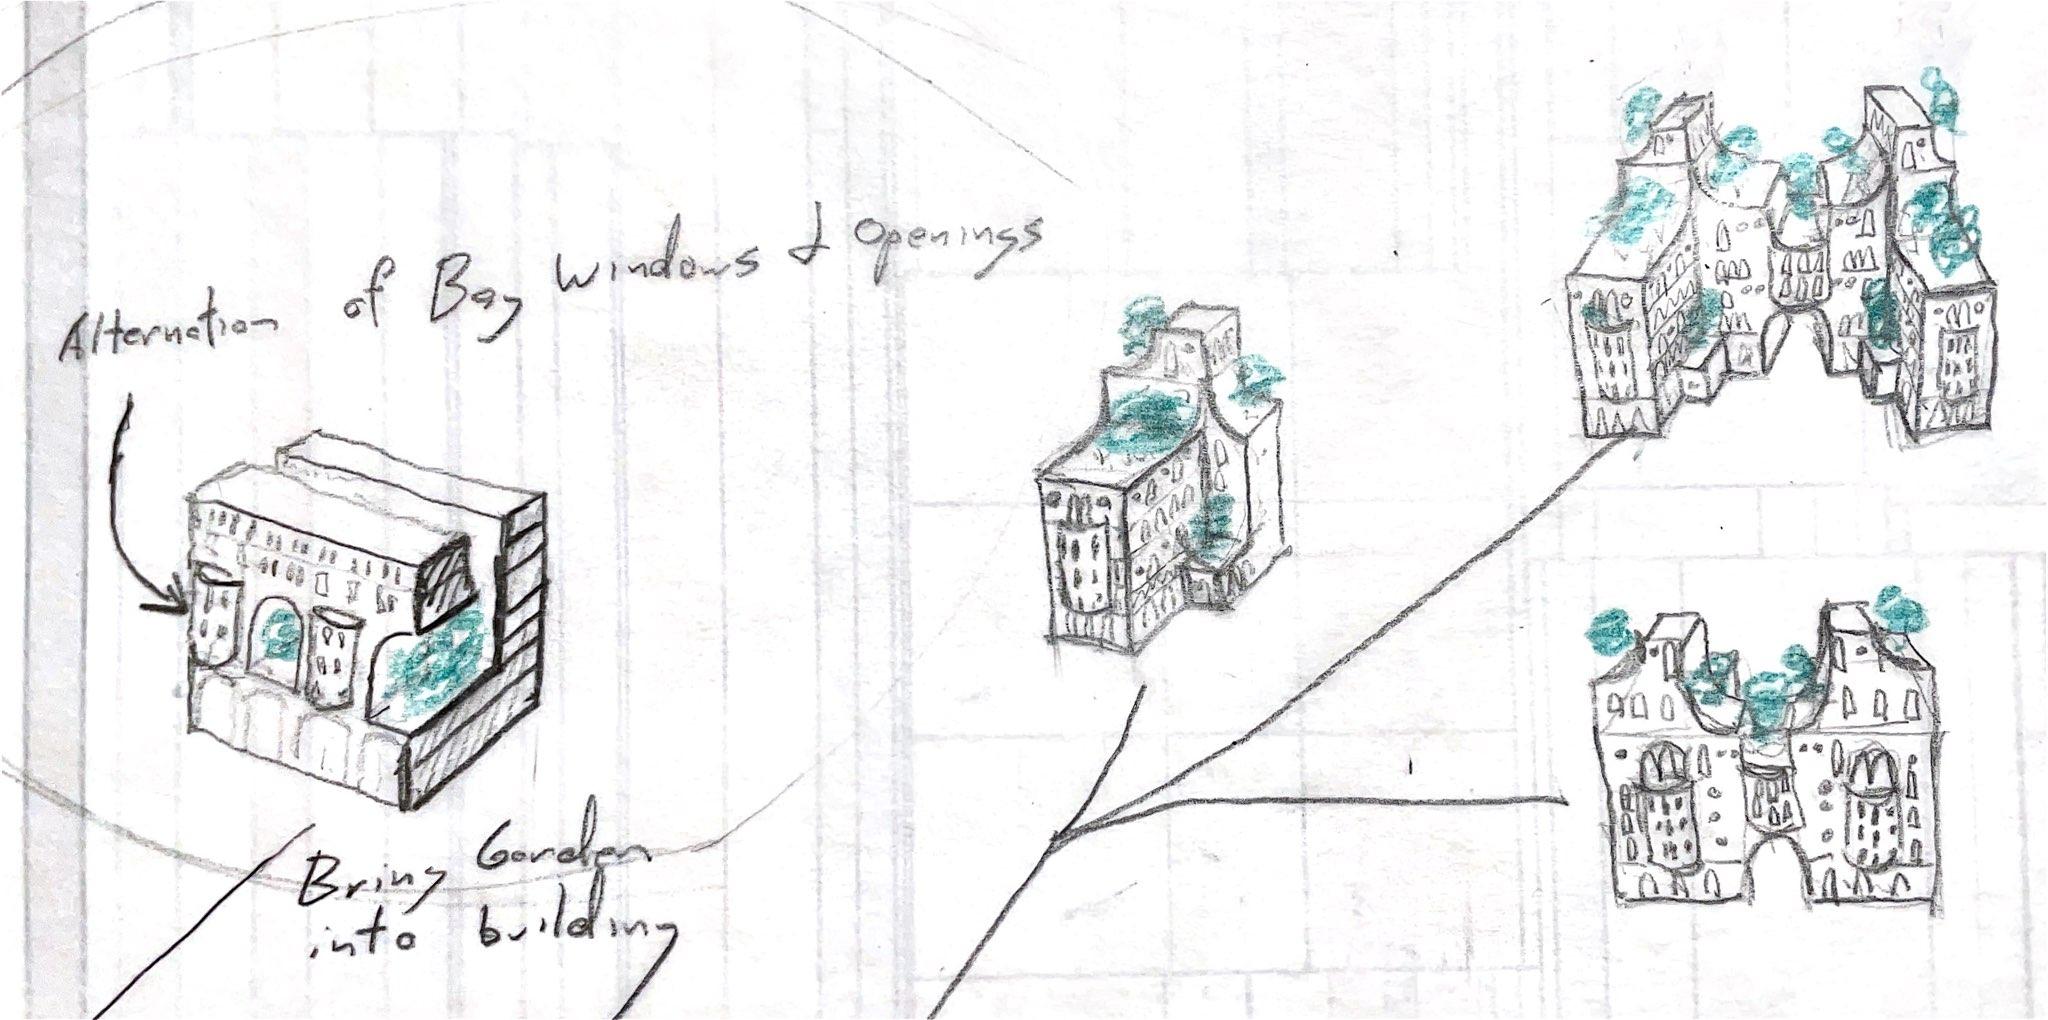 Alternation of Bay windows & openings
Bring Garden
into building